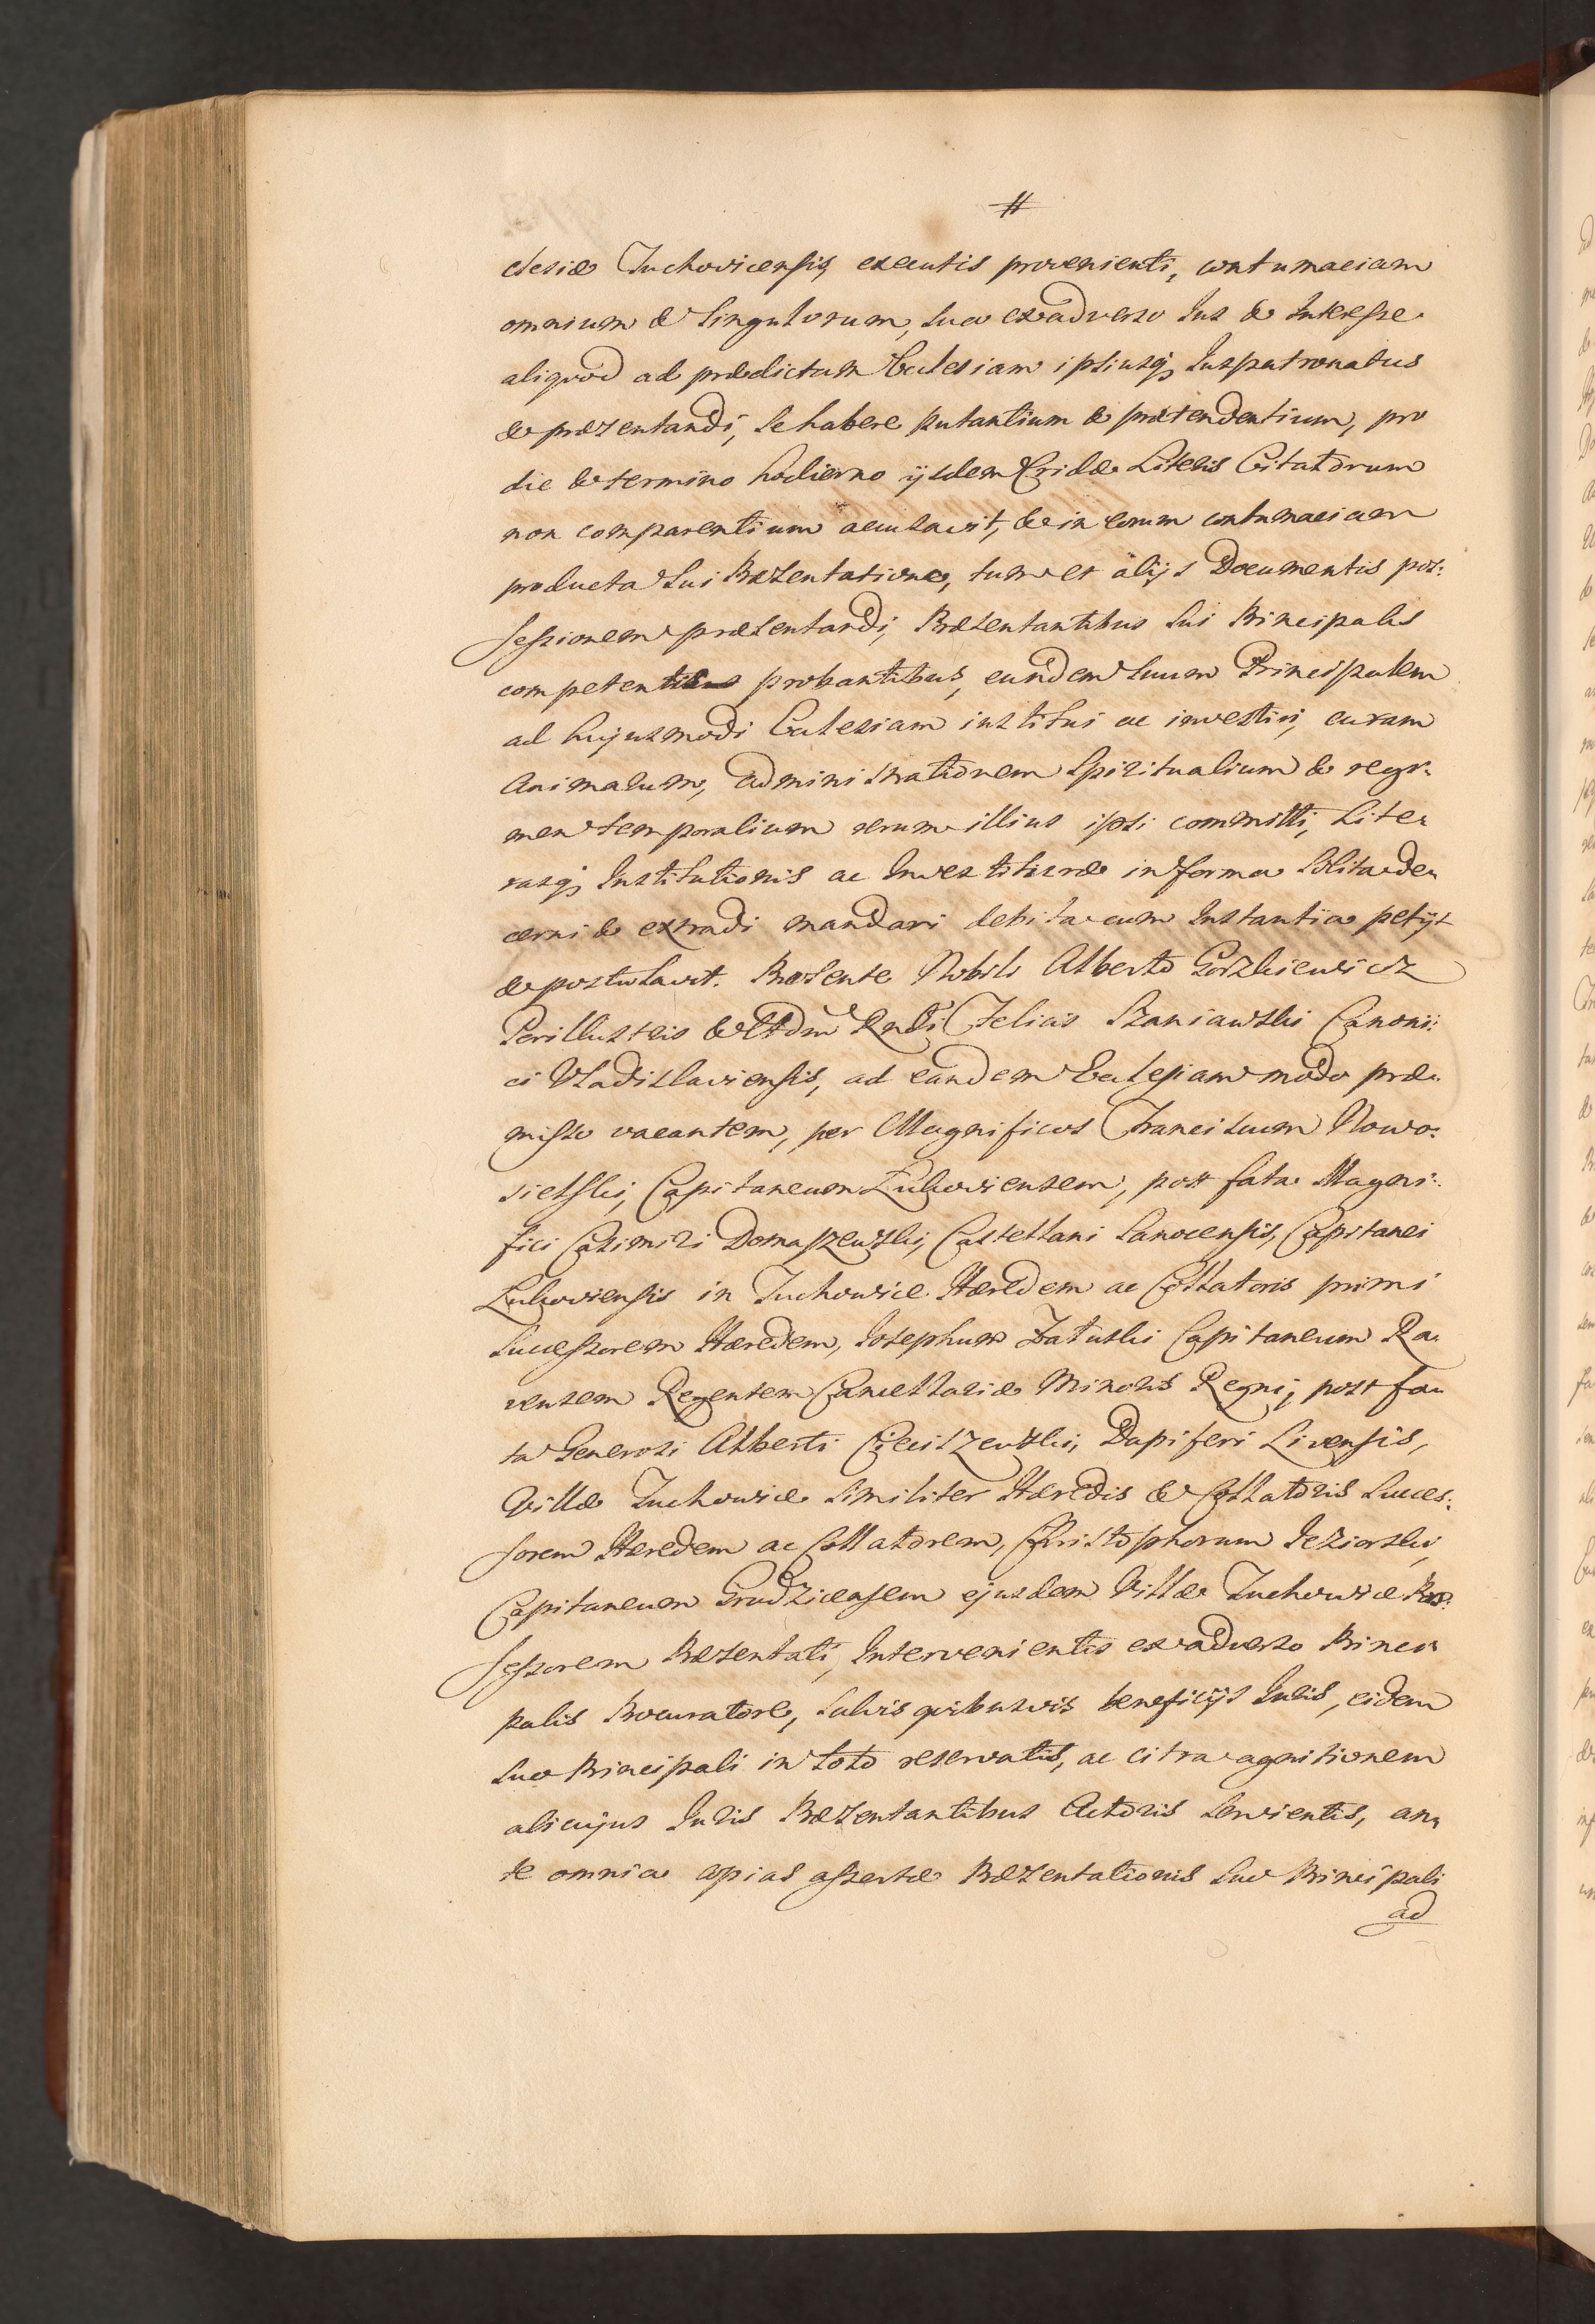 #
clesiæ Tuchovicensis, executis provenienti, contumaciam
omnium & Singulorum, sua exadverso Jus & Interesse
aliquod ad prædictam Ecclesiam ipsiusq; Juspatronatus
& præsentandi, se habere putantium & prætendentium, pro
die & termino hodierno ijsdem Cridæ Literis Citatorum
non comparentium accusavit, & in eorum contumaciam
producta sui Præsentatione, tum et alijs Documentis pos:
sessionem præsentandi, Præsentantibus sui Principalis
competentis probantibus, eundem suum Principalem
ad hujusmodi Ecclesiam institui ac investiri, curam
Animarum, administrationem Spiritualium & regi:
men temporalium rerum illius ipsi committi, Lite:
rasq; Institutionis ac Investituræ in forma solita de:
cerni & extradi mandari debita cum Instantia petijt
& postulavit. Præsente Nobili Alberto Gorzkiewicz
Perillustris & Adm Rndi Felicis Szaniawski Canoni:
ci Vladislaviensis, ad eandem Ecclesiam modo præ:
misso vacantem, per Magnificos Franciscum Nowo:
sielski, Capitaneum Lukoviensem, post fata Magni:
fici Casimiri Domaszewski, Castellani Sanocensis, Capitanei
Lukoviensis in Tuchowice Hæredem ac Collatoris primi
Successorem Hæredem, Josephum Załuski Capitaneum Ra:
vensem Regentem Cancellariæ Minoris Regni, post fa:
ta Generosi Alberti Cieciszewski, Dapiferi Livensis,
Villæ Tuchowice similiter Hæredis & Collatoris Succes:
sorem Hæredem ac Collatorem, Christophorum Jeziorski,
Capitaneum Grudzicensem ejusdem Villæ Tuchowice Pos:
sessorem Præsentati, Intervenientis exadverso Princi:
palis Procuratore, salvis quibusvis beneficijs Juris, eidem
suo Principali in toto reservatis, ac citra agnitionem
alicujus Juris Præsentantibus Actoris servientis, an:
te omnia copias assertæ Præsentationis suo Principali
ad